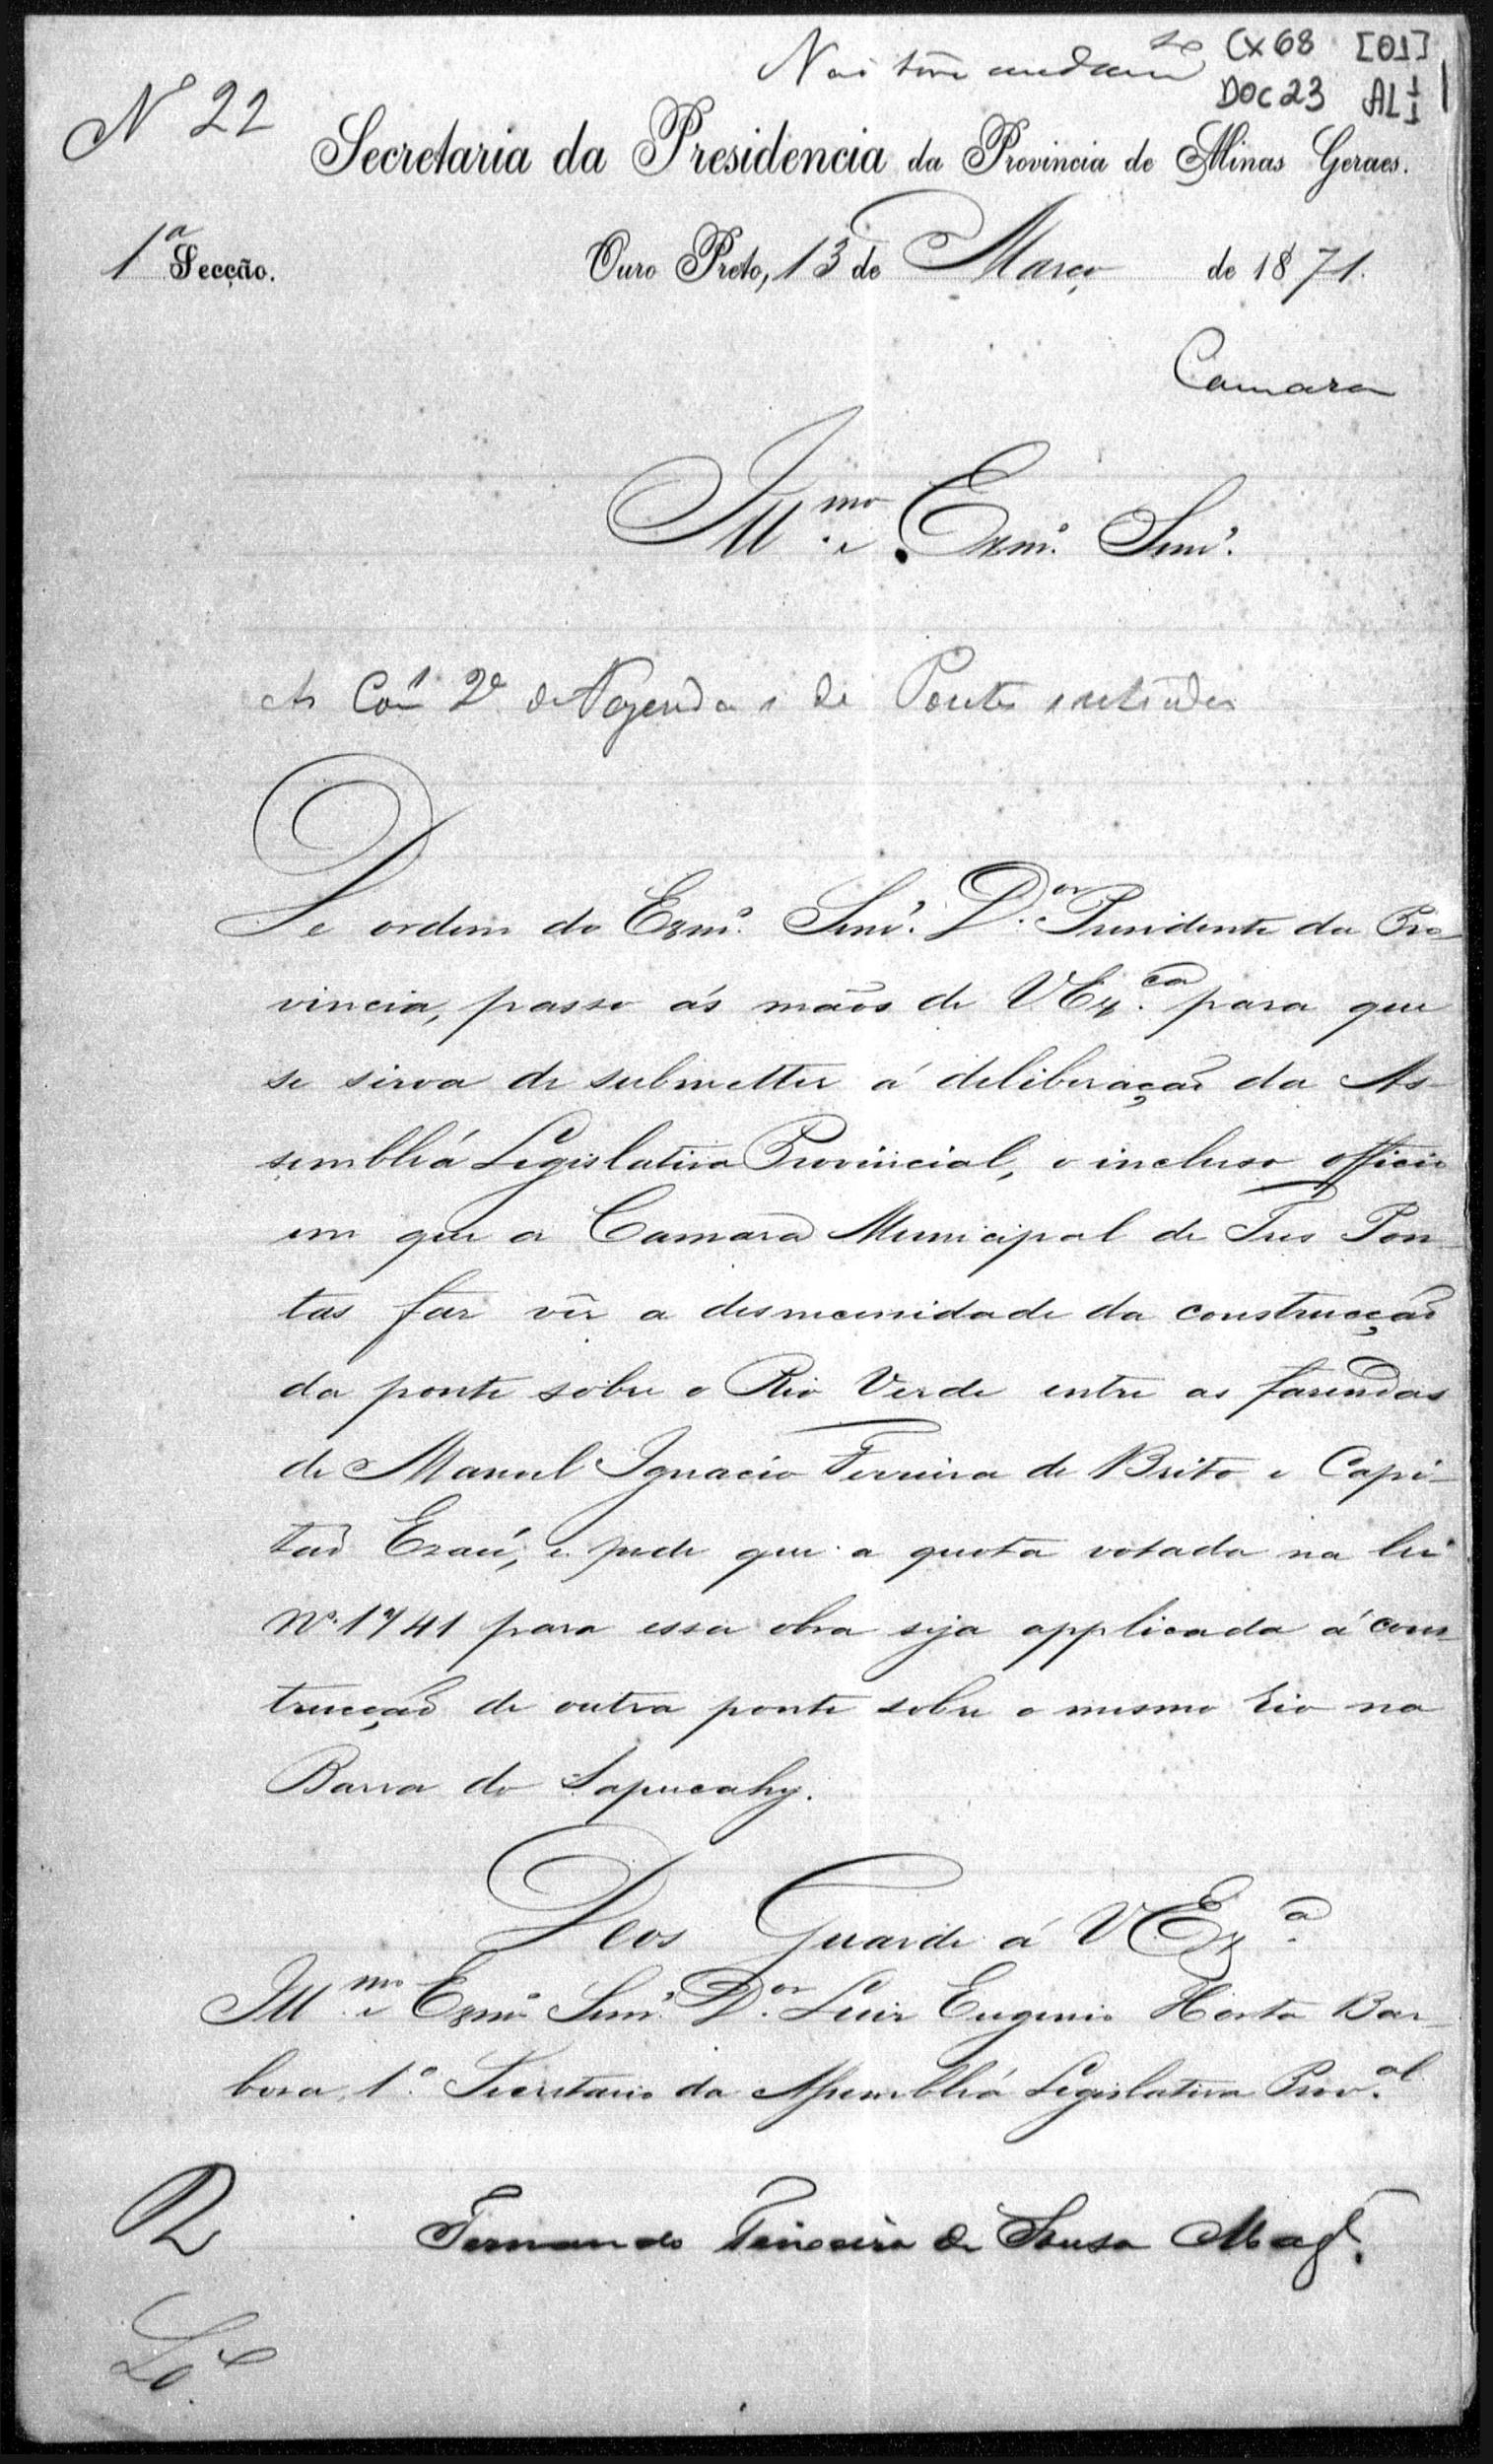 Não teve andamto
CX 68 [01]
DOC 23 AL 1
Nº 22
Secretaria da Presidencia da Provincia de Minas Geraes.
1ª Secção.
Ouro Preto, 13 de Março de 1871.
Camara
Illmo. e Exmº. Senr.
Às Com 2ª de Fazenda e de Pontes e estradas
De ordem do Exmº. Senr. Dor. Presidente da Pro-
vincia, passo ás mãos de V Exca. para que
se sirva de submetter á deliberação da As-
sembléa Legislativa Provincial, o incluso officio
em que a Camara Municipal de Tres Pon-
tas faz vêr a desnecessidade da construcção
da ponte sobre o Rio Verde entre as fazendas
de Manoel Ignacio Ferreira de Brito e Capi-
tão Ezaú, e pede que a quota votada na lei
Nº. 1741 para essa obra seja applicada á cons-
trucção de outra ponte sobre o mesmo rio na
Barra do Sapucahy.
Deos Guarde á V Exª.
Illmo. e Exmº Senr. Dor. Luiz Eugenio Horta Bar-
bosa, 1º. Secretario da Assembléa Legislativa Proval.
Fernando Teixeira de Souza Mags.